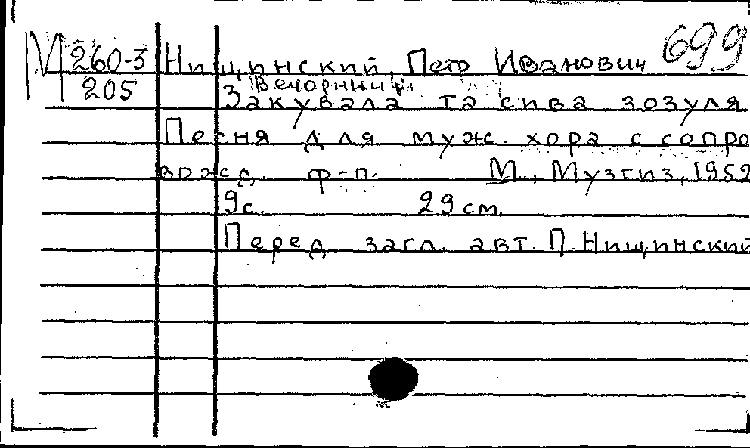 М 260-3 Нищинский, Петр Иванович 699
205 Вечорниці
Закувала та сива зозуля.
Песня для муж. хора с сопро
вожд. ф-п. М., Музгиз, 1952
9с. 29 см.
Перед загл. авт. П. Нищинский